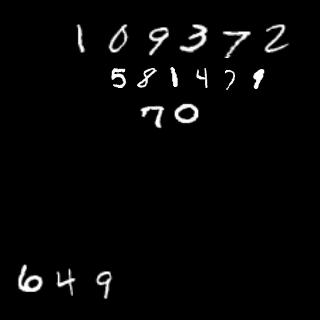 109372
581479
70
649